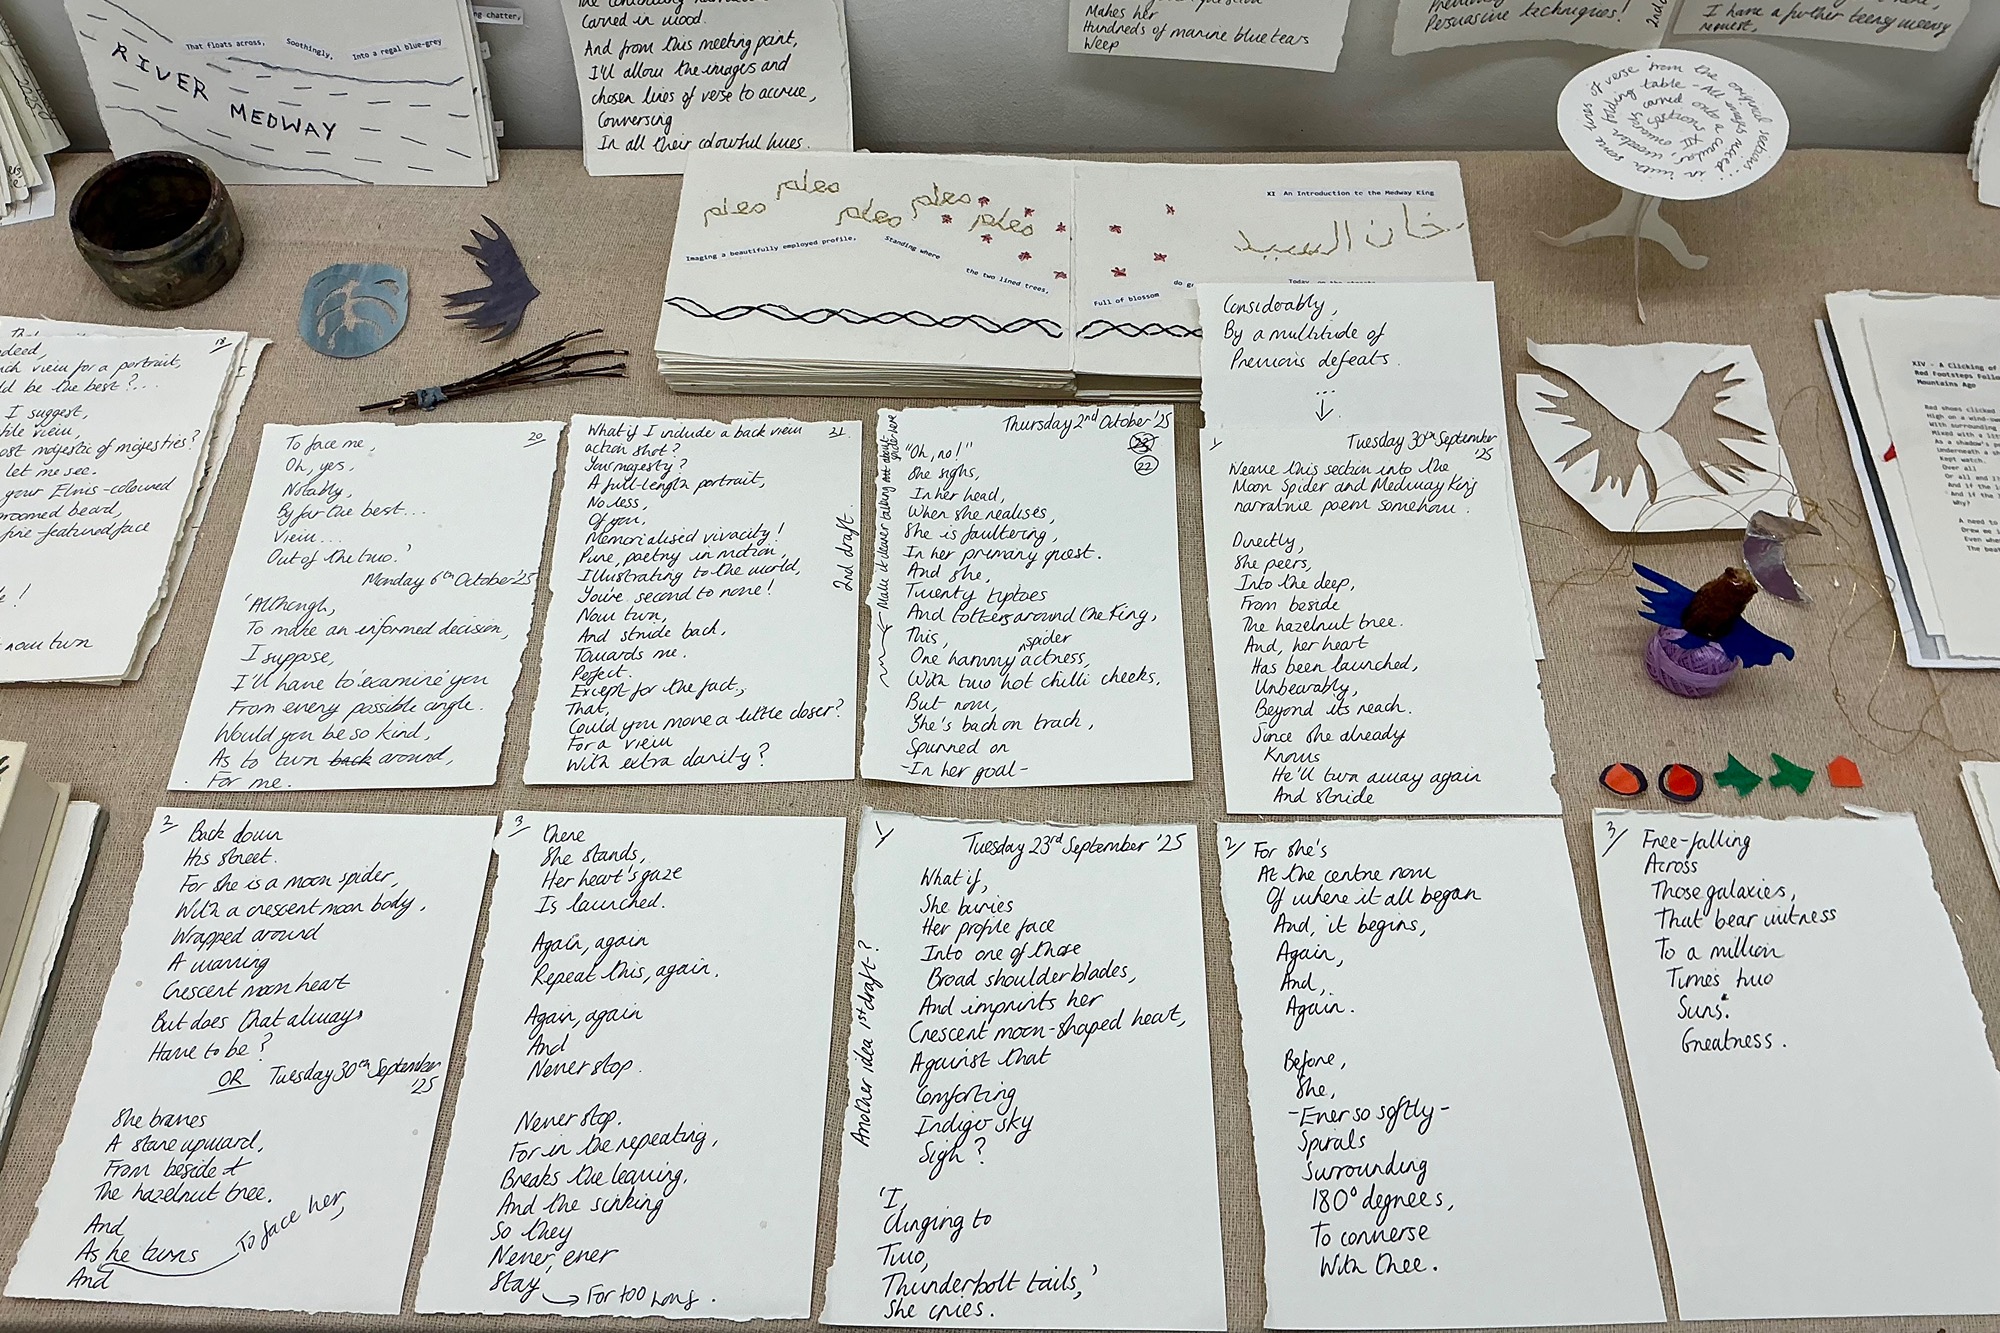 RIVER
MEDWAY
That floats across,
Soothingly,
Into a regal blue-grey
ng chatter,
Carved in wood.
And from this meeting point,
I'll allow the images and
chosen lines of verse to accrue,
Conversing
In all their colourful hues.
Makes her
Hundreds of marine blue tears
Weep
Persuasive techniques!
2nd
I have a further teeny weeny
request,
Imaging a beautifully employed profile,
Standing where
the two lined trees,
Full of blossom
XI An Introduction to the Medway King
Today, on the streets
18
ndeed,
ch view for a portrait,
ld be the best?...
I suggest,
ost majestic of majesties?
let me see.
your Elvis-coloured
roomed beard,
fine-featured face
now turn
20
To face me,
Oh, yes,
Notably,
By far the best...
View...
Out of the two.'
Monday 6th October '25
'Although,
To make an informed decision,
I suppose,
I'll have to examine you
From every possible angle.
Would you be so kind,
As to turn back around,
For me.
21
What if I include a back view
action shot?
Your majesty?
A full-length portrait,
No less,
Of you,
Memorialised vivacity!
Pure, poetry in motion,
Illustrating to the world,
You're second to none!
Now turn,
And stride back,
Towards me.
Perfect.
Except for the fact,
That,
Could you move a little closer?
For a view
With extra clarity?
2nd draft.
Thursday 2nd October '25
23
22
Make it clearer talking about
"Oh, no!"
She sighs,
In her head,
When she realises,
She is faultering,
In her primary quest.
And she,
Twenty tiptoes
And totters around the King,
This,
One hammy spider actness,
With two hot chilli cheeks.
But now,
She's back on track,
Spurred on
-In her goal-
Considerably,
By a multitude of
Previous defeats.
...
↓
1/
Tuesday 30th September
'25
Weave this section into the
Moon Spider and Medway King
narrative poem somehow.
Directly,
She peers,
Into the deep,
From beside
The hazelnut tree.
And, her heart
Has been launched,
Unbearably,
Beyond its reach.
Since she already
Knows
He'll turn away again
And stride
XIV - A Clicking of
Red Footsteps Follo
Mountains Ago
Red shoes clicked
High on a wind-ow
With surrounding
Mixed with a litt
As a shadow's p
Underneath a sh
Kept watch.
Over all
Or all and I
And if the l
And if the
Why?
A need to
Drew me i
Even whe
The beat
2/
Back down
His street.
For she is a moon spider,
With a crescent moon body,
Wrapped around
A warring
Crescent moon heart
But does that always
Have to be?
OR Tuesday 30th September
'25
She braves
A stare upward,
From beside
The hazelnut tree.
And
As he turns To face her,
And
3/
There
She stands,
Her heart's gaze
Is launched.
Again, again
Repeat this, again.
Again, again
And
Never stop.
Never stop.
For in the repeating,
Breaks the leaving,
And the sinking
So they
Never, ever
Stay → For too long.
1/
Tuesday 23rd September '25
Another idea 1st draft?
What if,
She buries
Her profile face
Into one of those
Broad shoulder blades,
And imprints her
Crescent moon-shaped heart,
Against that
Comforting
Indigo sky
Sigh?
'I,
Clinging to
Two,
Thunderbolt tails,'
She cries.
2/
For she's
At the centre now
Of where it all began
And, it begins,
Again,
And,
Again.
Before,
She,
-Ever so softly-
Spirals
Surrounding
180° degrees,
To converse
With thee.
3/
Free-falling
Across
Those galaxies,
That bear witness
To a million
Times two
Suns'
Greatness.